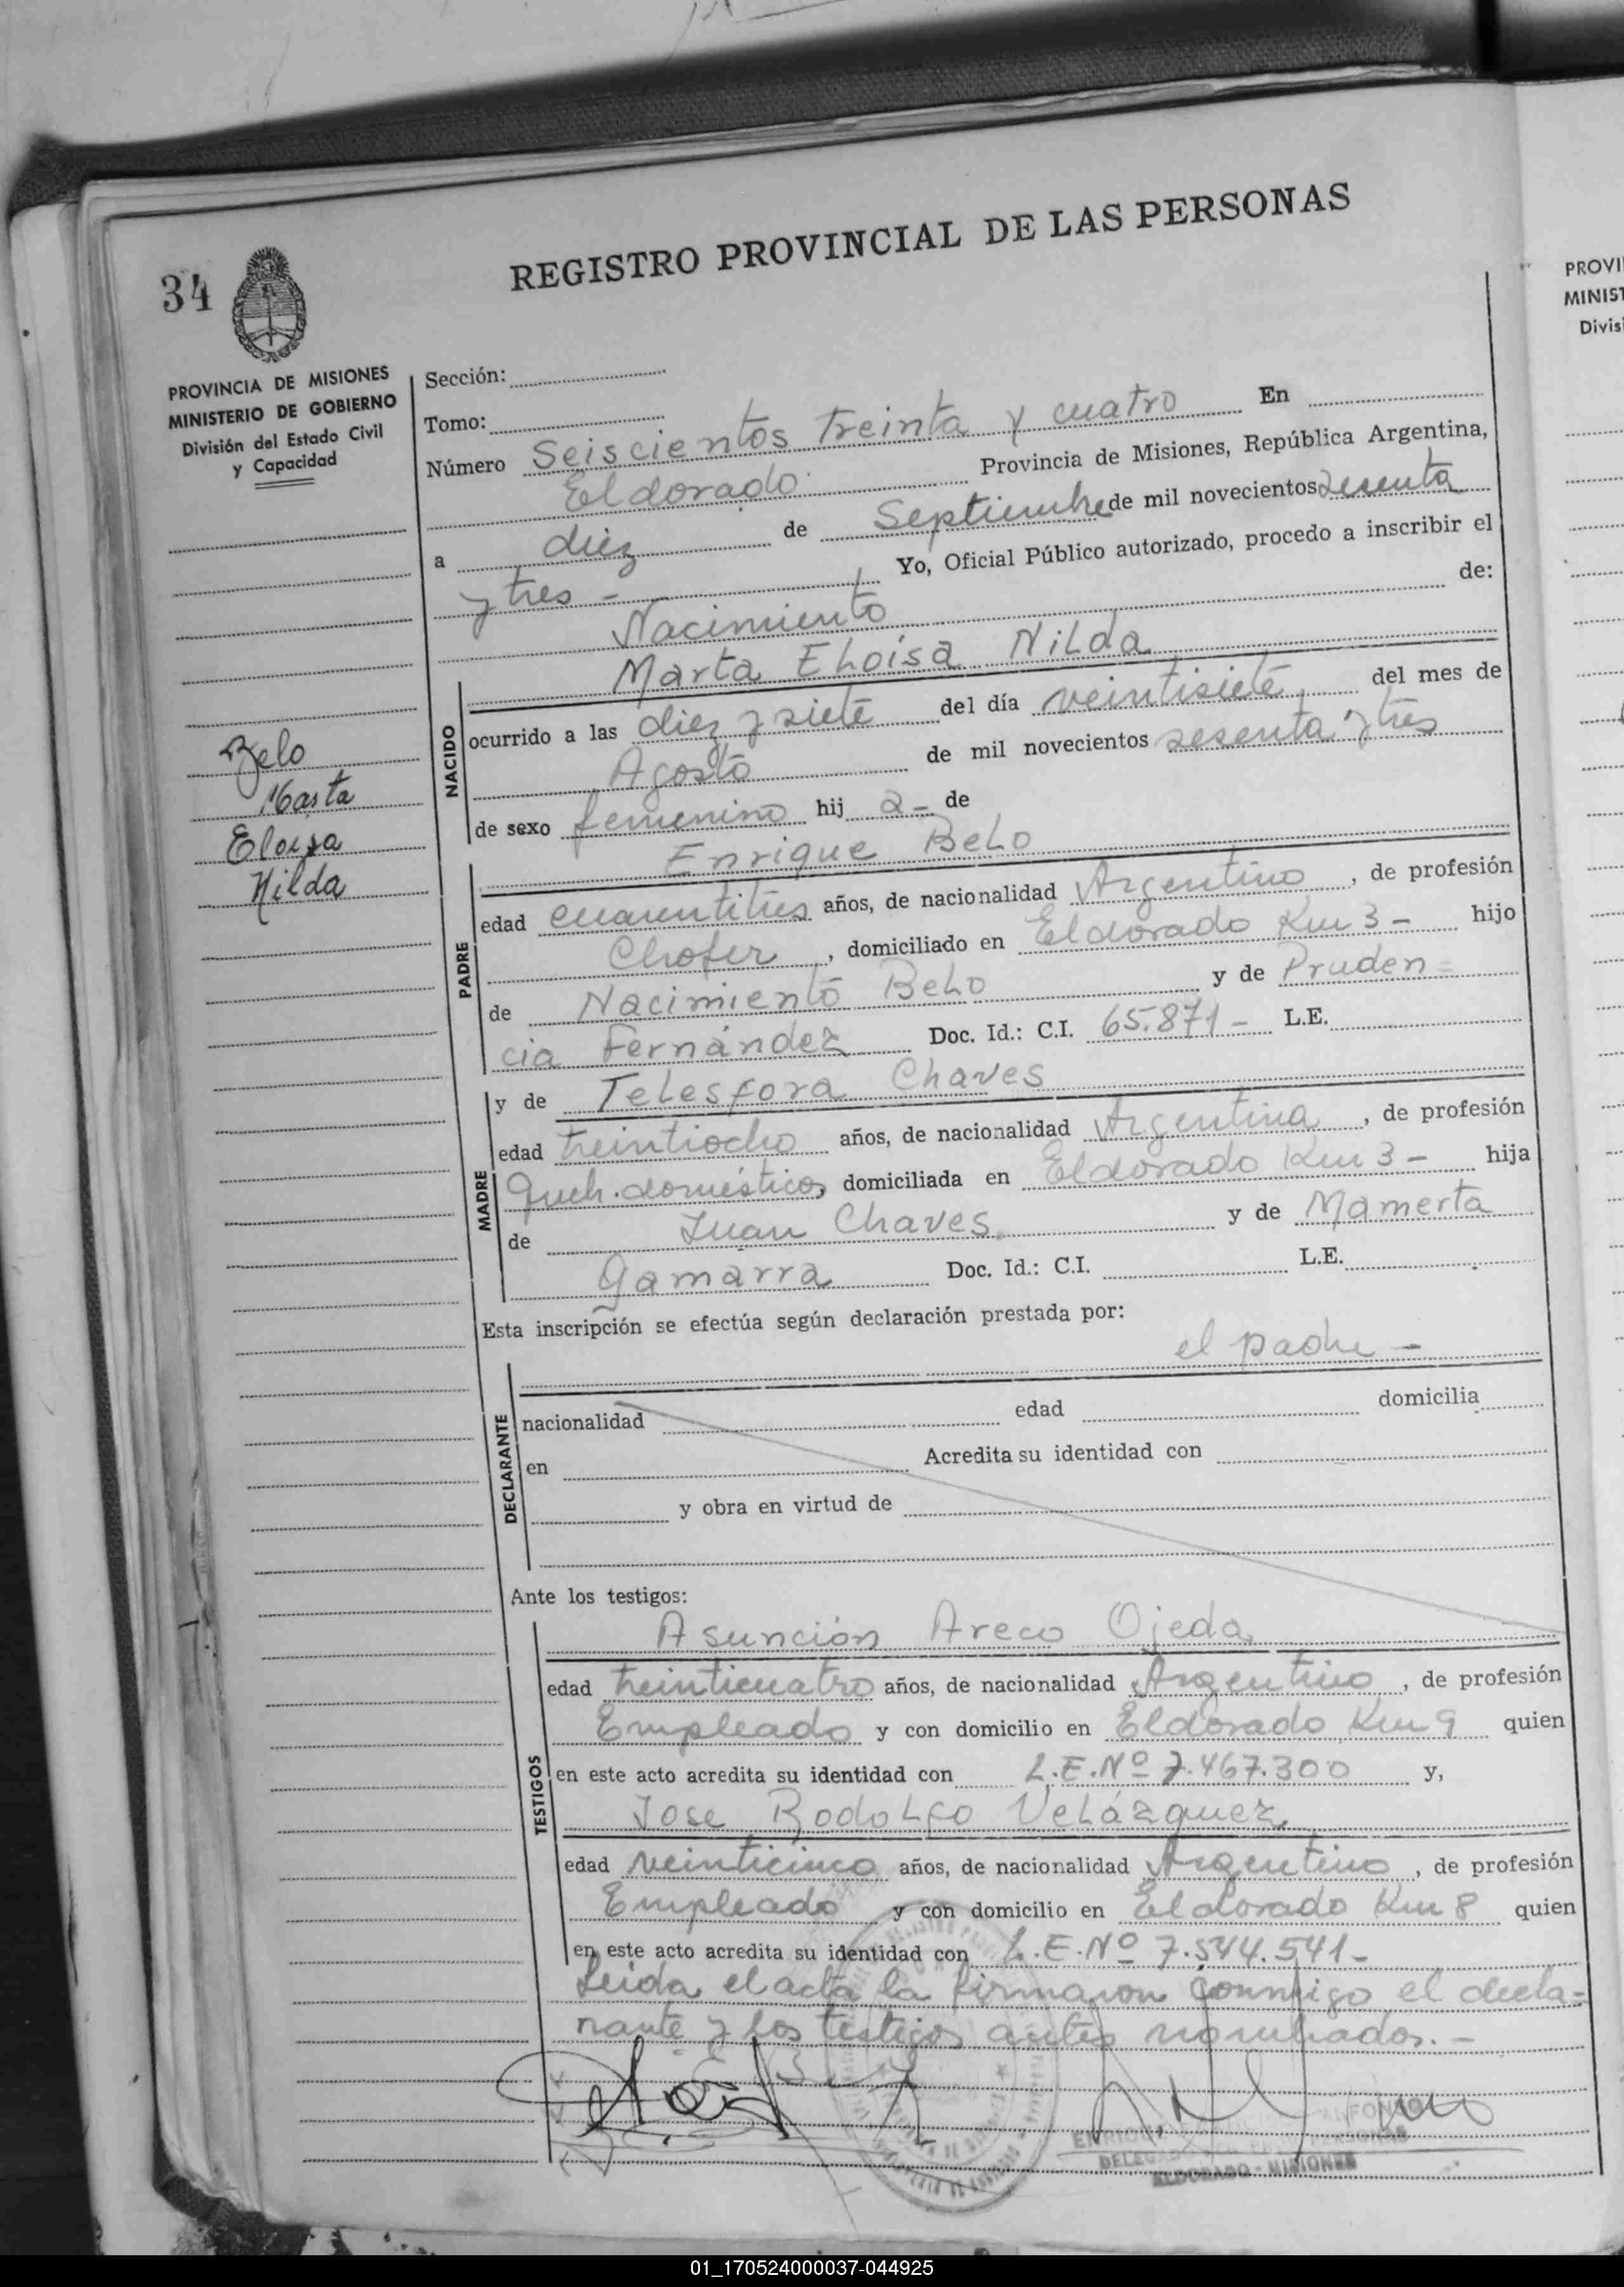 REGISTRO PROVINCIAL DE LAS PERSONAS
34
PROVINCIA DE MISIONES
MINISTERIO DE GOBIERNO
División del Estado Civil
y Capacidad
Belo
Marta
Eloisa
Nilda
Sección:
Tomo:
Número Seiscientos Treinta y cuatro En
Eldorado Provincia de Misiones, República Argentina,
a diez de Septiembre de mil novecientos sesenta
y tres - Yo, Oficial Público autorizado, procedo a inscribir el
Nacimiento de:
Marta Eloisa Nilda
NACIDO
ocurrido a las diez y siete del día veintisiete, del mes de
Agosto de mil novecientos sesenta y tres
de sexo femenino hij a - de
Enrique Belo
PADRE
edad cuarentitres años, de nacionalidad Argentino, de profesión
Chofer, domiciliado en Eldorado Km 3 - hijo
de Nacimiento Belo y de Pruden=
cia Fernández Doc. Id.: C.I. 65.871 - L.E.
y de Telesfora Chaves
MADRE
edad treintiocho años, de nacionalidad Argentina, de profesión
Queh. domésticos, domiciliada en Eldorado Km 3 - hija
de Juan Chaves y de Mamerta
Gamarra Doc. Id.: C.I. L.E.
Esta inscripción se efectúa según declaración prestada por:
el padre -
DECLARANTE
nacionalidad edad domicilia
en Acredita su identidad con
y obra en virtud de
Ante los testigos:
TESTIGOS
Asunción Areco Ojeda
edad treinticuatro años, de nacionalidad Argentino, de profesión
Empleado y con domicilio en Eldorado Km 9 quien
en este acto acredita su identidad con L.E. Nº 7.467.300 y,
Jose Rodolfo Velázquez
edad veinticinco años, de nacionalidad Argentino, de profesión
Empleado y con domicilio en Eldorado Km 8 quien
en este acto acredita su identidad con L.E. Nº 7.544.541 -
Leida el acta la firmaron conmigo el decla=
rante y los testigos antes nombrados. -
ELDORADO - MISIONES
PROVI
MINIST
Divis
01_170524000037-044925